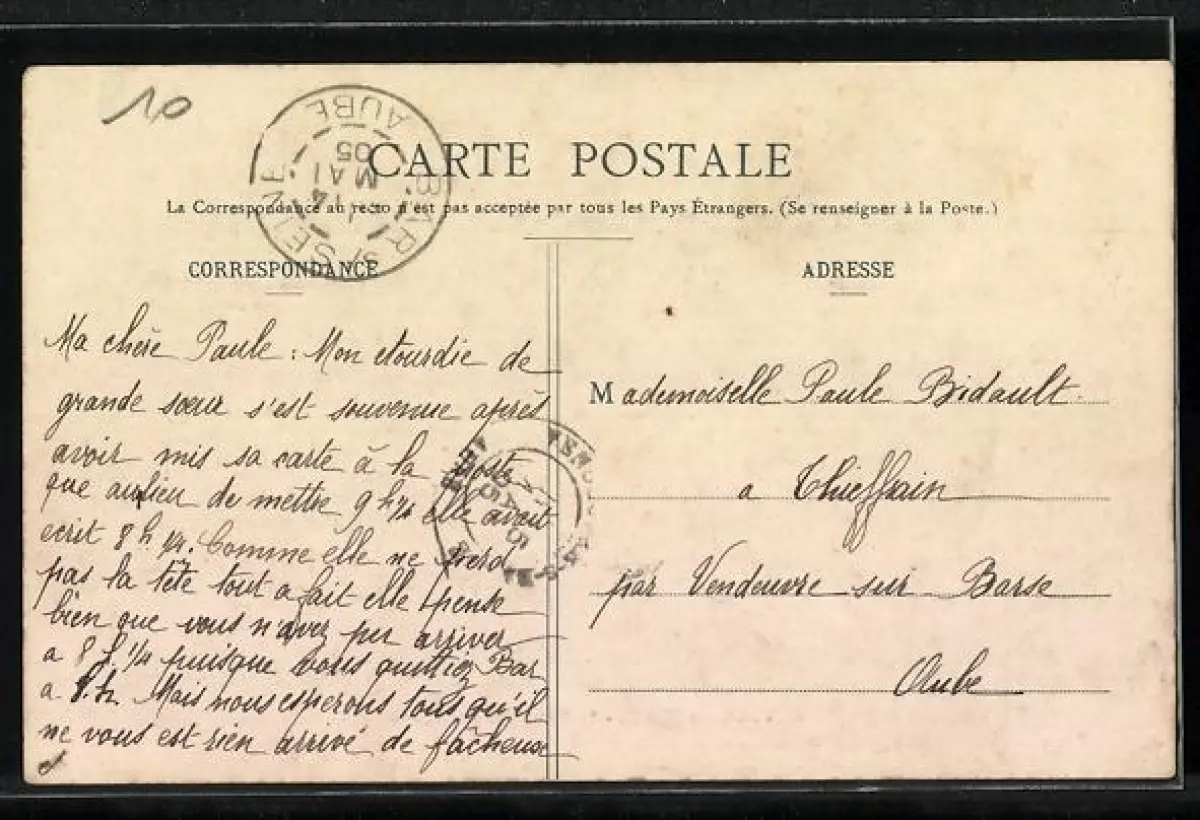 10
BAR S/ SEINE
14
MAI
05
AUBE
CARTE POSTALE
La Correspondance au recto n'est pas acceptée par tous les Pays Étrangers. (Se renseigner à la Poste.)
CORRESPONDANCE
Ma chère Paule : Mon etourdie de
grande sœur s'est souvenue après
avoir mis sa carte à la poste
que aulieu de mettre 9 h 1/4 elle avait
ecrit 8 h. 1/4. Comme elle ne perd
pas la tête tout a fait elle pense
bien que vous n'avez pu arriver
a 8 h. 1/4 puisque vous quittiez Bar
a 8. h. Mais nous esperons tous qu'il
ne vous est rien arrivé de fâcheuse
ADRESSE
Mademoiselle Paule Bidault.
a Thieffrain
par Vendeuvre sur Barse
Aube